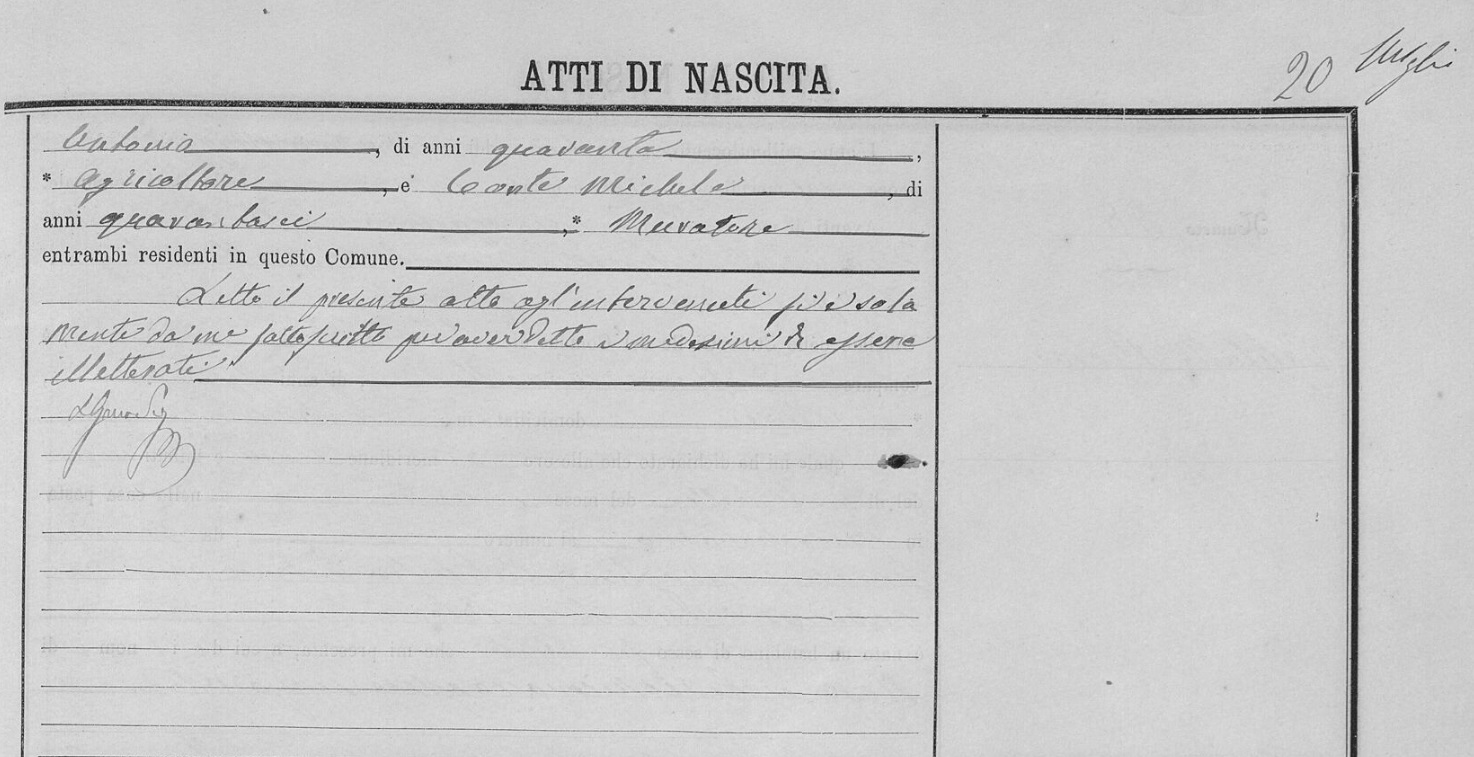 20
ATTI DI NASCITA.
Antonio, di anni quaranta,
* Agricoltore, e Conte Michele, di
anni quarantasei,* Muratore
entrambi residenti in questo Comune.
Letto il presente atto agl'intervenuti si è sola
mente da me sottoscritto per aver detto i medesimi di essere
illetterati.